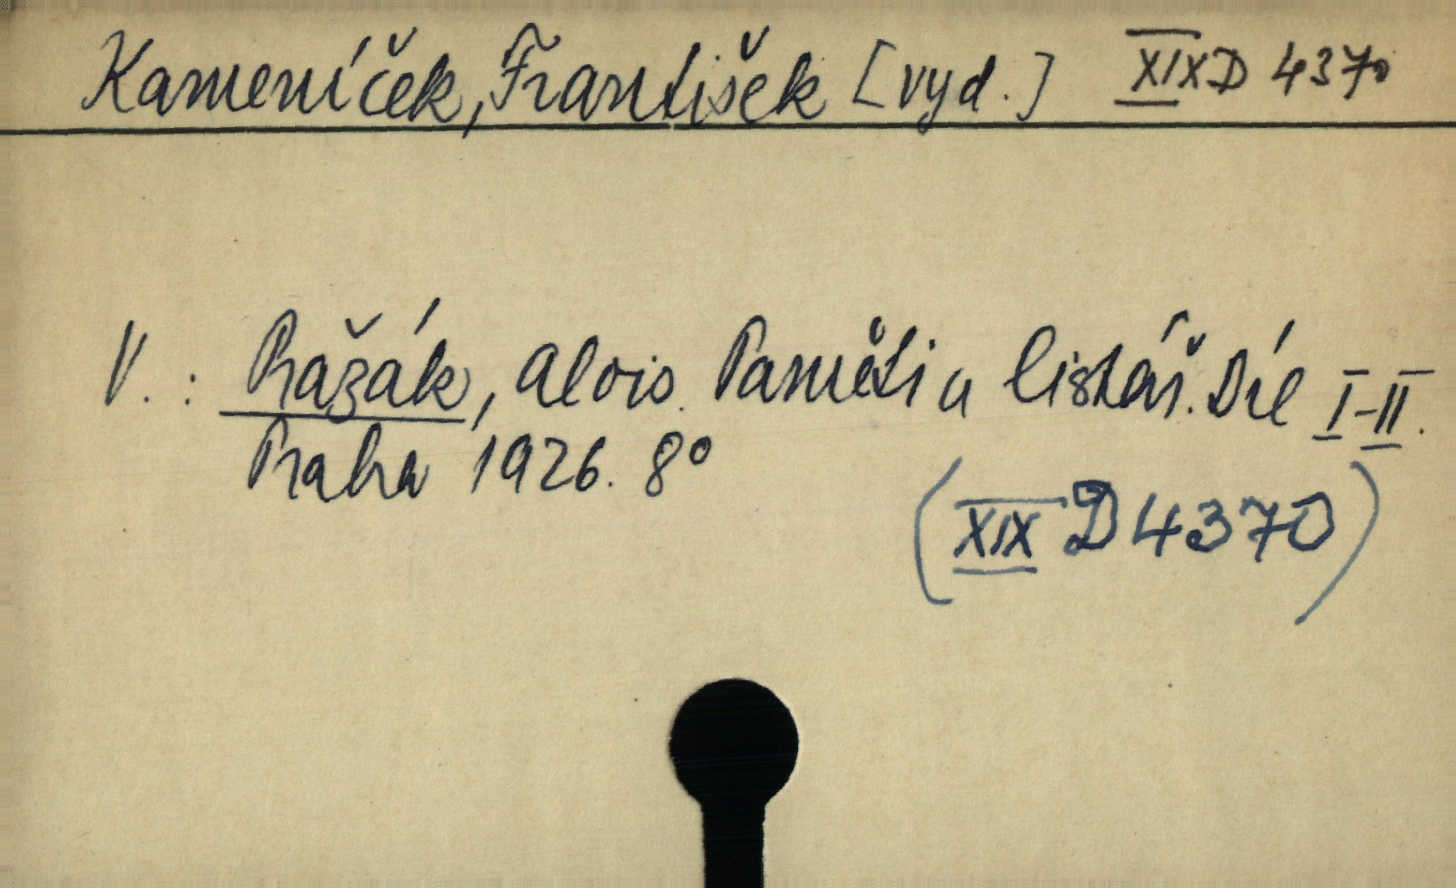 Kameníček, František [vyd.] XIX D 4370
V.: Pražák, Alois. Paměti a listář. Díl I-II.
Praha 1926. 8°
(XIX D 4370)